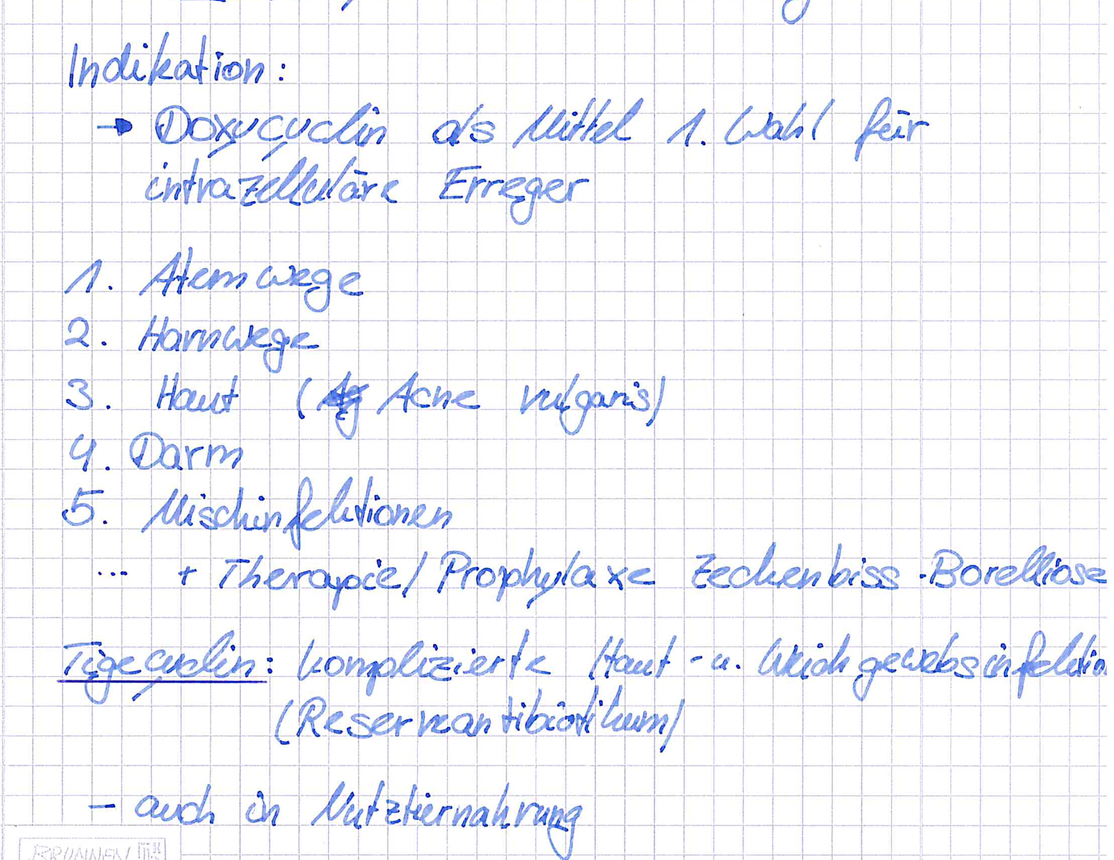 Indikation:
→ Doxycyclin als Mittel 1. Wahl für
intrazelluläre Erreger
1. Atemwege
2. Harnwege
3. Haut ( Acne vulgaris)
4. Darm
5. Mischinfektionen
... + Therapie/Prophylaxe Zeckenbiss-Borelliose
Tigecyclin: komplizierte Haut- u. Weichgewebsinfektio
(Reserveantibiotikum)
- auch in Nutztiernahrung
BRUNNEN